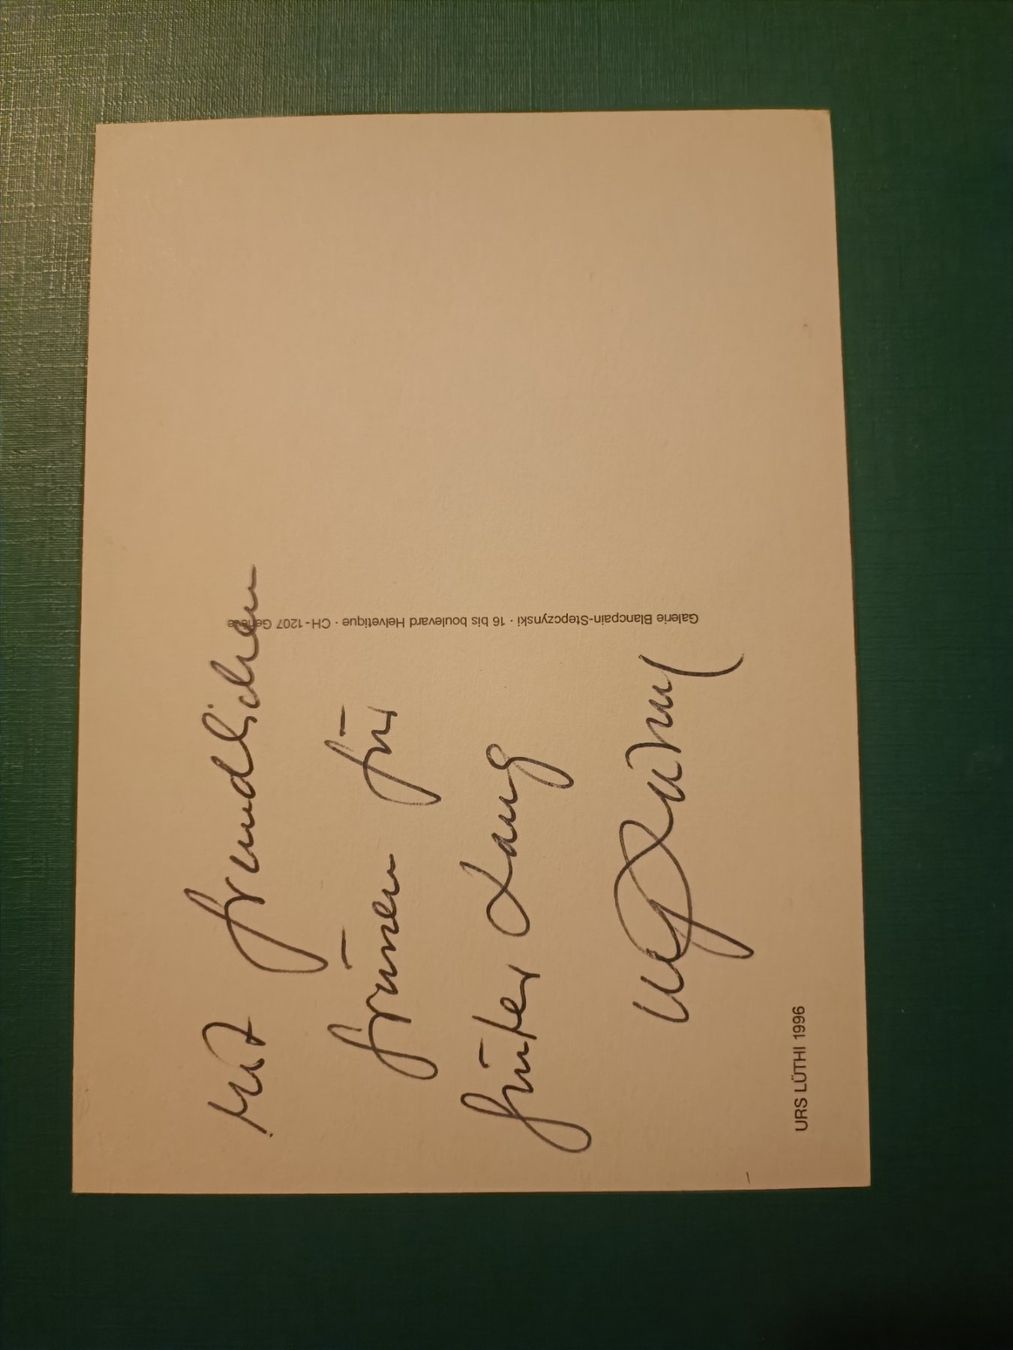 Mit freundlichen
Grüßen für
Günter Lang
Urs Lüthi
URS LÜTHI 1996
Galerie Blancpain-Stepczynski · 16 bis boulevard Helvetique · CH-1207 Genève